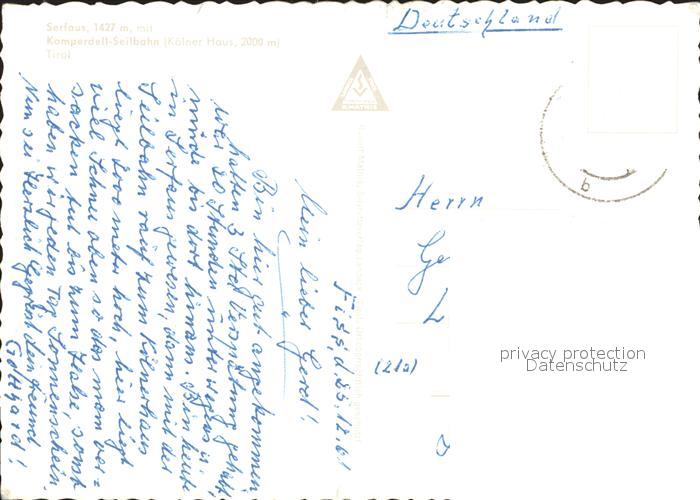 Serfaus, 1427 m, mit
Komperdell-Seilbahn (Kölner Haus, 2000 m)
Tirol
Deutschland
Fiss, d. 23.12.61
Mein lieber Gerd!
Bin hier gut angekommen
hatten 3 Std Verspätung gehabt
war 20 Stunden unterwegs
bis dort hinauf. Bin heute
in Serfaus gewesen, dann mit der
Seilbahn rauf zum Kölnerhaus
liegt 2000 meter hoch, hier liegt
viel Schnee oben so das mam ver=
sacken tut bis zum Halse, sonst
haben wir jeden Tag Sonnenschein.
Nun sei Herzlich Gegrüst dein Freund
Gotthard!
Herrn
Ge
L
(21a)
privacy protection
Datenschutz